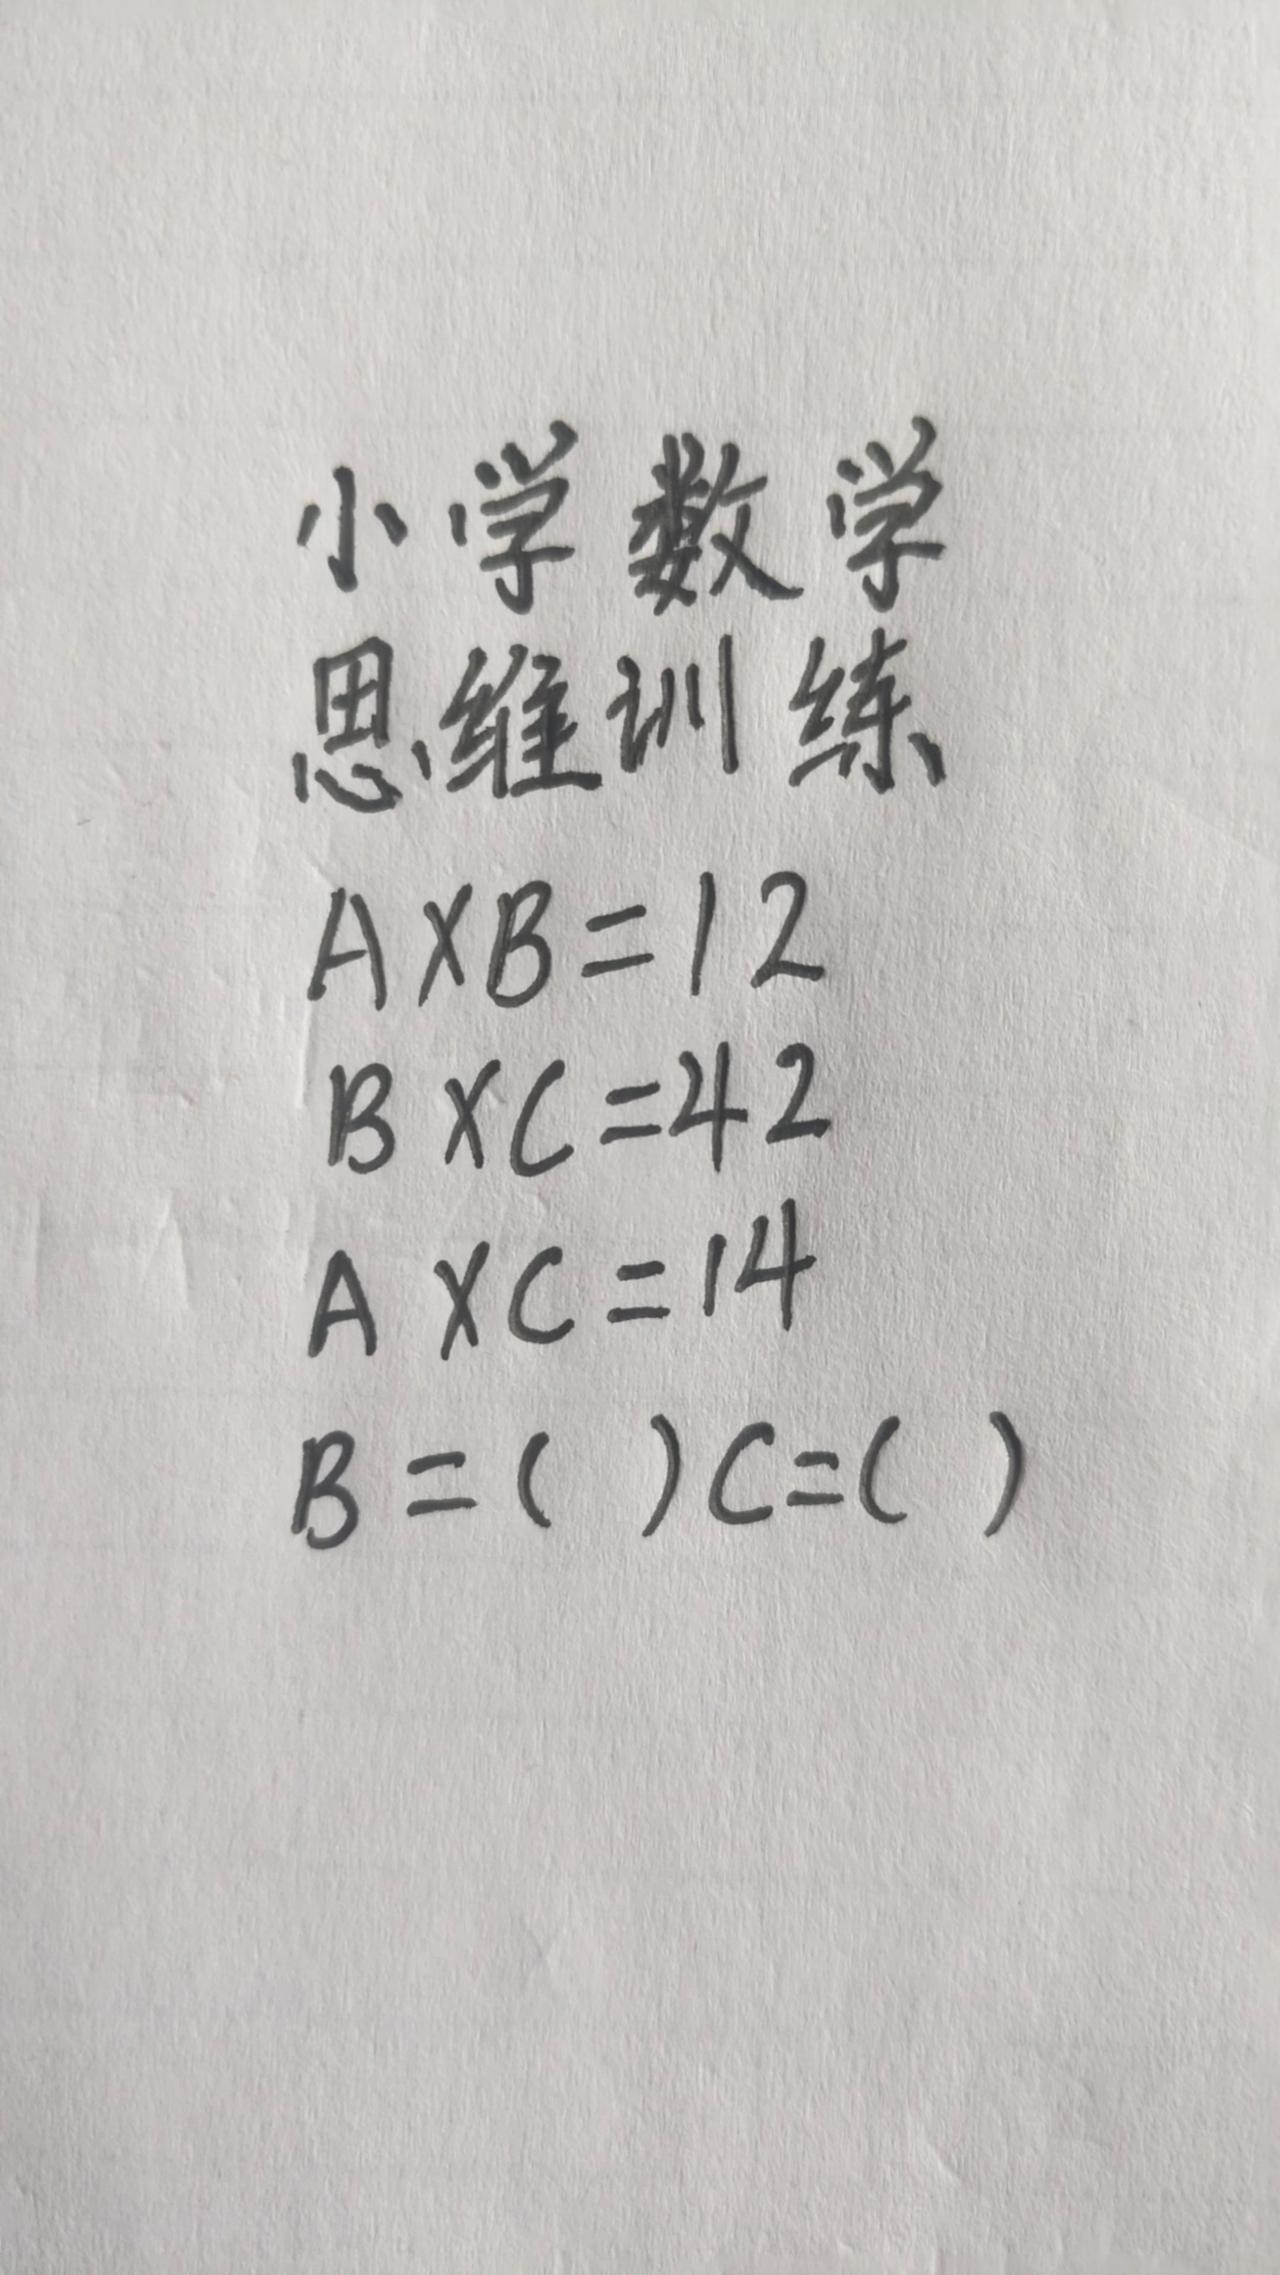 小学数学
思维训练
A×B=12
B×C=42
A×C=14
B=( )C=( )